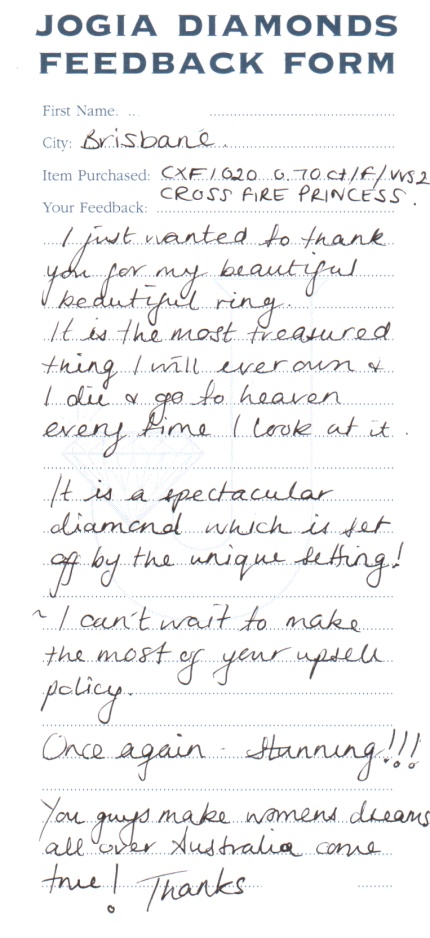 JOGIA DIAMONDS
FEEDBACK FORM
First Name.
City: Brisbane.
Item Purchased: CXF1020 0.70ct/F/VVS2
CROSS FIRE PRINCESS.
Your Feedback:
I just wanted to thank
you for my beautiful
beautiful ring.
It is the most treasured
thing I will ever own &
I die & go to heaven
every time I look at it.
It is a spectacular
diamond which is set
off by the unique setting!
~ I can't wait to make
the most of your upsell
policy.
Once again - Stunning!!!
You guys make womens dreams
all over Australia come
true! Thanks